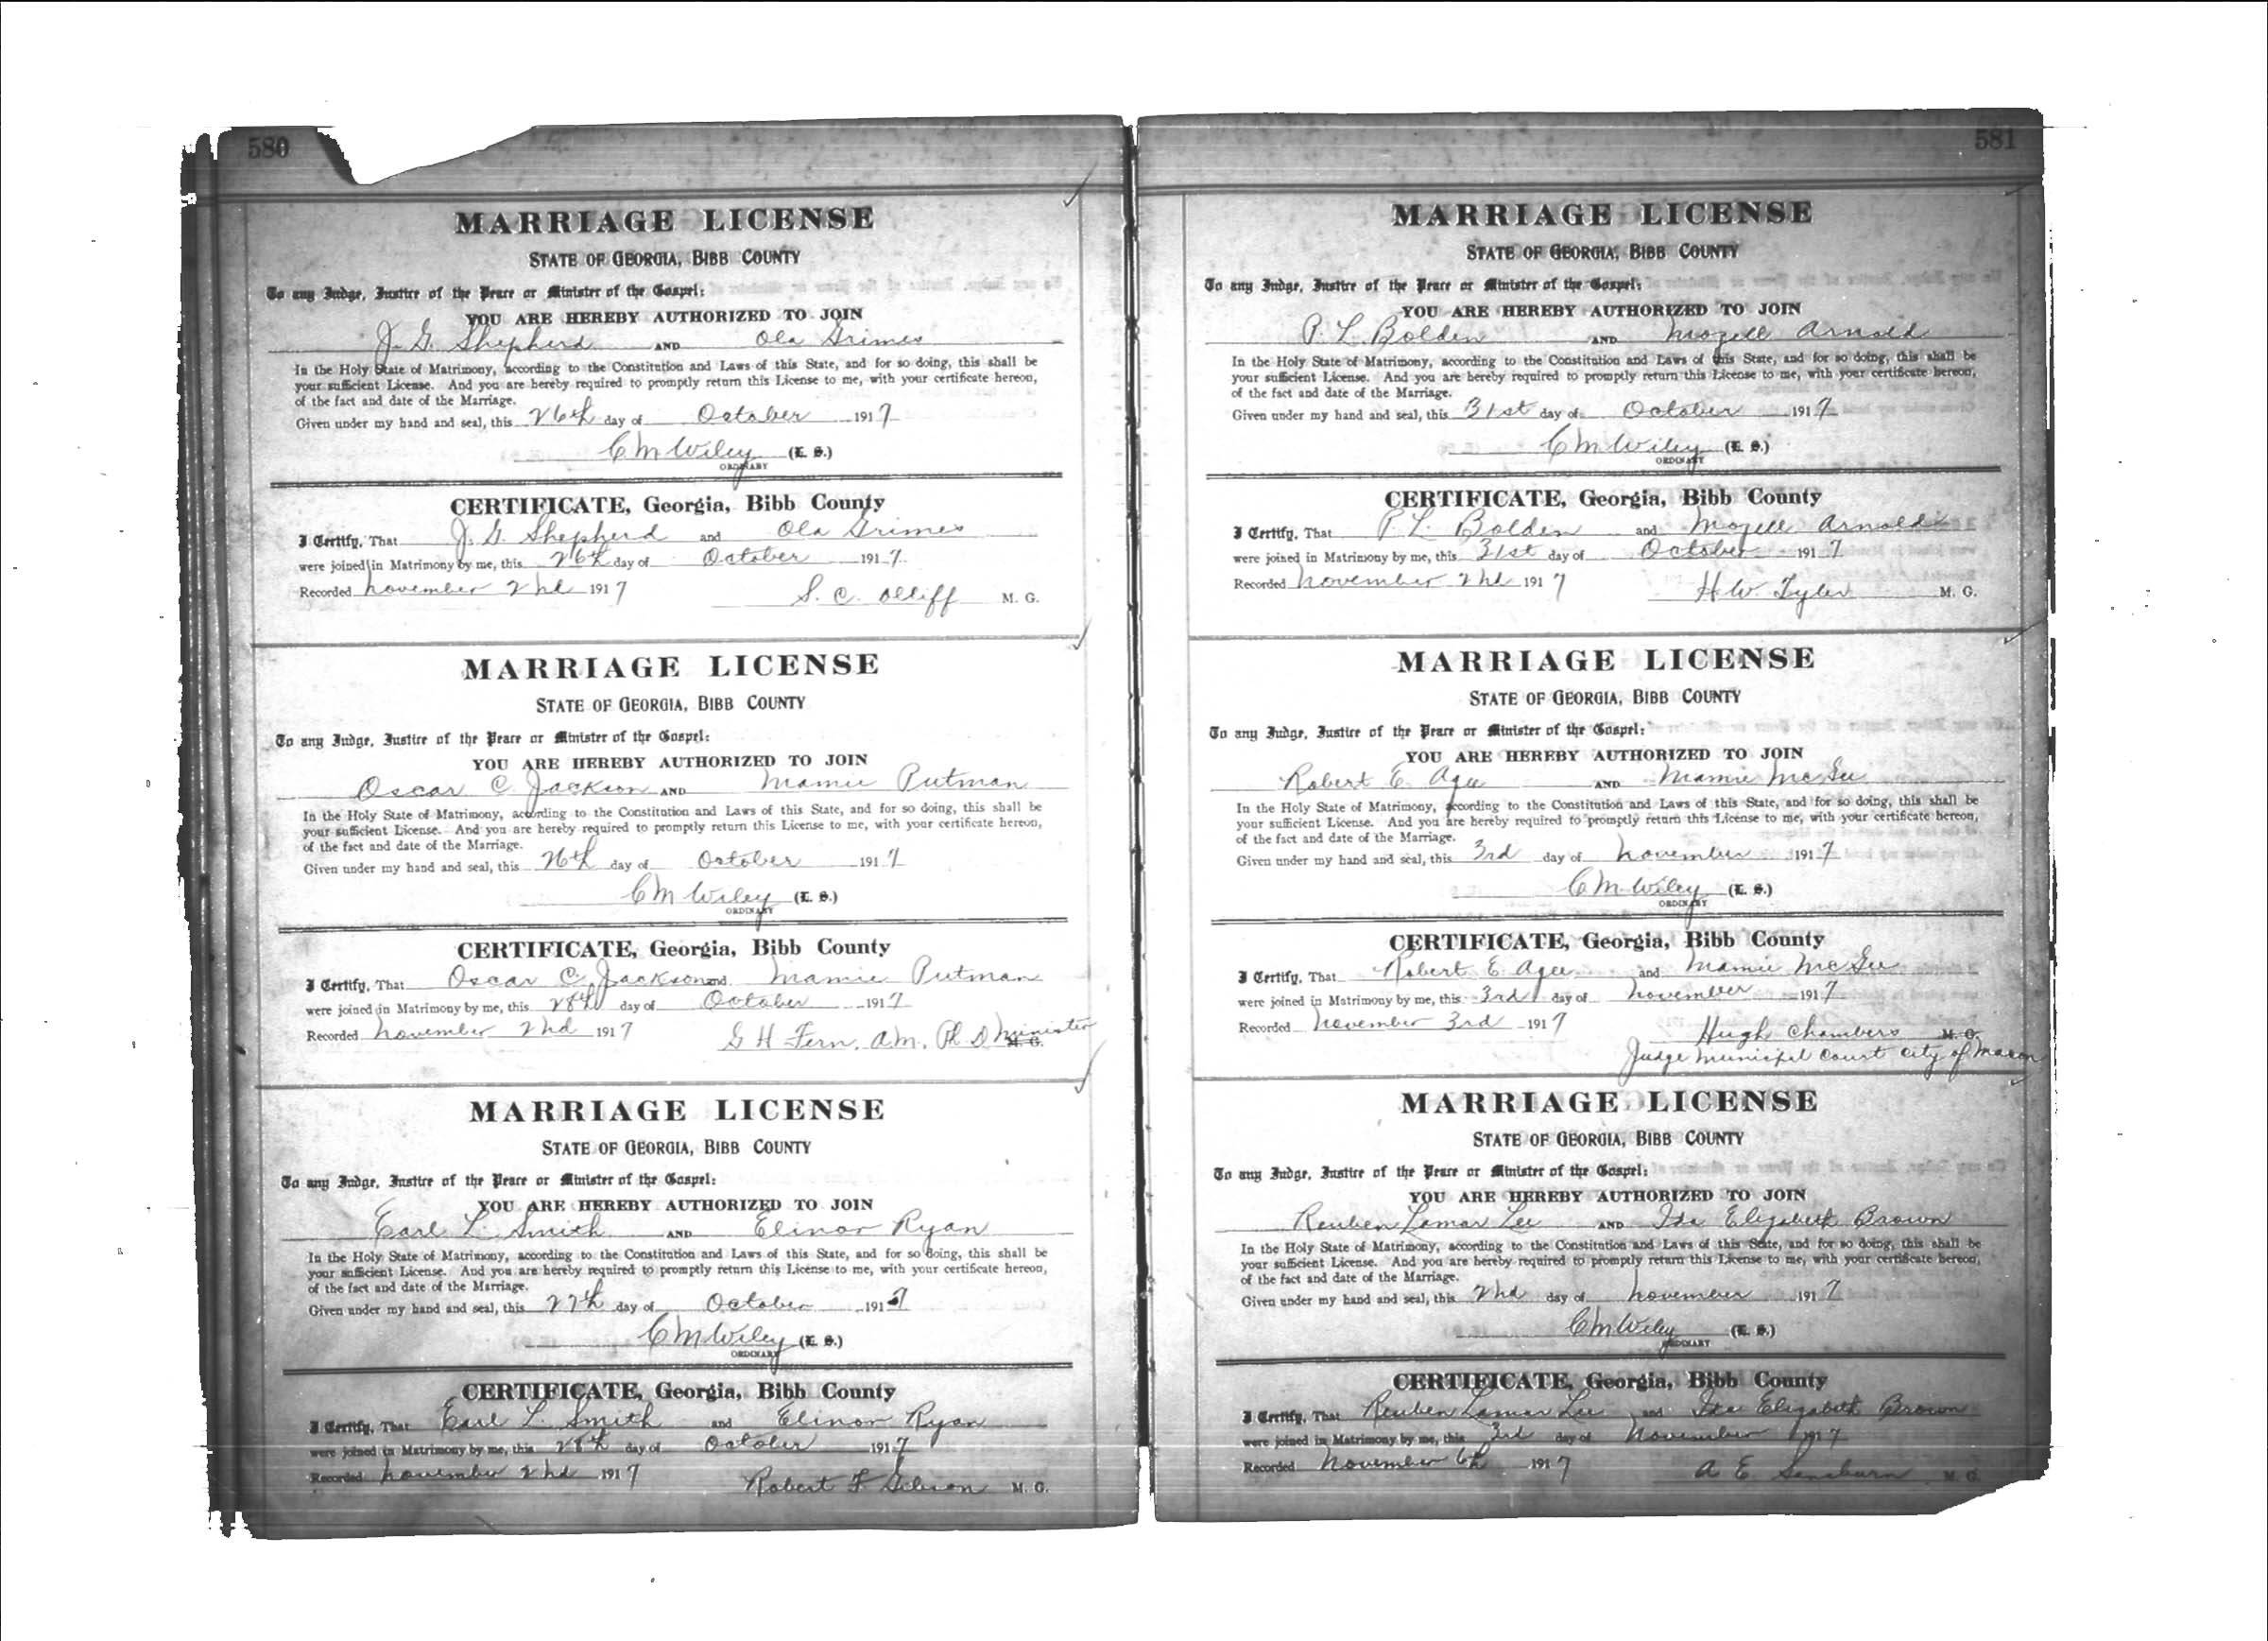 580
MARRIAGE LICENSE
STATE OF GEORGIA, BIBB COUNTY
To any Judge, Justice of the Peace or Minister of the Gospel:
YOU ARE HEREBY AUTHORIZED TO JOIN
J. G. Shepherd AND Ola Grimes
In the Holy State of Matrimony, according to the Constitution and Laws of this State, and for so doing, this shall be
your sufficient License. And you are hereby required to promptly return this License to me, with your certificate hereon,
of the fact and date of the Marriage.
Given under my hand and seal, this 26th day of October 1917
C M Wiley (L. S.)
ORDINARY
CERTIFICATE, Georgia, Bibb County
I Certify, That J. G. Shepherd and Ola Grimes
were joined in Matrimony by me, this 26th day of October 1917.
Recorded November 2nd 1917 S. C. Olliff M. G.
MARRIAGE LICENSE
STATE OF GEORGIA, BIBB COUNTY
To any Judge, Justice of the Peace or Minister of the Gospel:
YOU ARE HEREBY AUTHORIZED TO JOIN
Oscar C. Jackson AND Mamie Putman
In the Holy State of Matrimony, according to the Constitution and Laws of this State, and for so doing, this shall be
your sufficient License. And you are hereby required to promptly return this License to me, with your certificate hereon,
of the fact and date of the Marriage.
Given under my hand and seal, this 26th day of October 1917
C M Wiley (L. S.)
ORDINARY
CERTIFICATE, Georgia, Bibb County
I Certify, That Oscar C. Jackson and Mamie Putman
were joined in Matrimony by me, this 28th day of October 1917
Recorded November 2nd 1917 G H Fern, A.M. Ph D Minister M. G.
MARRIAGE LICENSE
STATE OF GEORGIA, BIBB COUNTY
To any Judge, Justice of the Peace or Minister of the Gospel:
YOU ARE HEREBY AUTHORIZED TO JOIN
Earl L. Smith AND Elinor Ryan
In the Holy State of Matrimony, according to the Constitution and Laws of this State, and for so doing, this shall be
your sufficient License. And you are hereby required to promptly return this License to me, with your certificate hereon,
of the fact and date of the Marriage.
Given under my hand and seal, this 27th day of October 1917
C M Wiley (L. S.)
ORDINARY
CERTIFICATE, Georgia, Bibb County
I Certify, That Earl L. Smith and Elinor Ryan
were joined in Matrimony by me, this 28th day of October 1917
Recorded November 2nd 1917 Robert F Gibson M. G.
581
MARRIAGE LICENSE
STATE OF GEORGIA, BIBB COUNTY
To any Judge, Justice of the Peace or Minister of the Gospel:
YOU ARE HEREBY AUTHORIZED TO JOIN
P. L. Bolden AND Mozell Arnold
In the Holy State of Matrimony, according to the Constitution and Laws of this State, and for so doing, this shall be
your sufficient License. And you are hereby required to promptly return this License to me, with your certificate hereon,
of the fact and date of the Marriage.
Given under my hand and seal, this 31st day of October 1917
C M Wiley (L. S.)
ORDINARY
CERTIFICATE, Georgia, Bibb County
I Certify, That P. L. Bolden and Mozell Arnold
were joined in Matrimony by me, this 31st day of October 1917
Recorded November 2nd 1917 H W. Tyler M. G.
MARRIAGE LICENSE
STATE OF GEORGIA, BIBB COUNTY
To any Judge, Justice of the Peace or Minister of the Gospel:
YOU ARE HEREBY AUTHORIZED TO JOIN
Robert E. Agee AND Mamie McGee
In the Holy State of Matrimony, according to the Constitution and Laws of this State, and for so doing, this shall be
your sufficient License. And you are hereby required to promptly return this License to me, with your certificate hereon,
of the fact and date of the Marriage.
Given under my hand and seal, this 3rd day of November 1917
C M Wiley (L. S.)
ORDINARY
CERTIFICATE, Georgia, Bibb County
I Certify, That Robert E. Agee and Mamie McGee
were joined in Matrimony by me, this 3rd day of November 1917
Recorded November 3rd 1917 Hugh Chambers M. G.
Judge Municipal Court City of Macon
MARRIAGE LICENSE
STATE OF GEORGIA, BIBB COUNTY
To any Judge, Justice of the Peace or Minister of the Gospel:
YOU ARE HEREBY AUTHORIZED TO JOIN
Reuben Lamar Lee AND Ida Elizabeth Brown
In the Holy State of Matrimony, according to the Constitution and Laws of this State, and for so doing, this shall be
your sufficient License. And you are hereby required to promptly return this License to me, with your certificate hereon,
of the fact and date of the Marriage.
Given under my hand and seal, this 2nd day of November 1917
C M Wiley (L. S.)
ORDINARY
CERTIFICATE, Georgia, Bibb County
I Certify, That Reuben Lamar Lee and Ida Elizabeth Brown
were joined in Matrimony by me, this 3rd day of November 1917
Recorded November 6th 1917 A E. M. G.